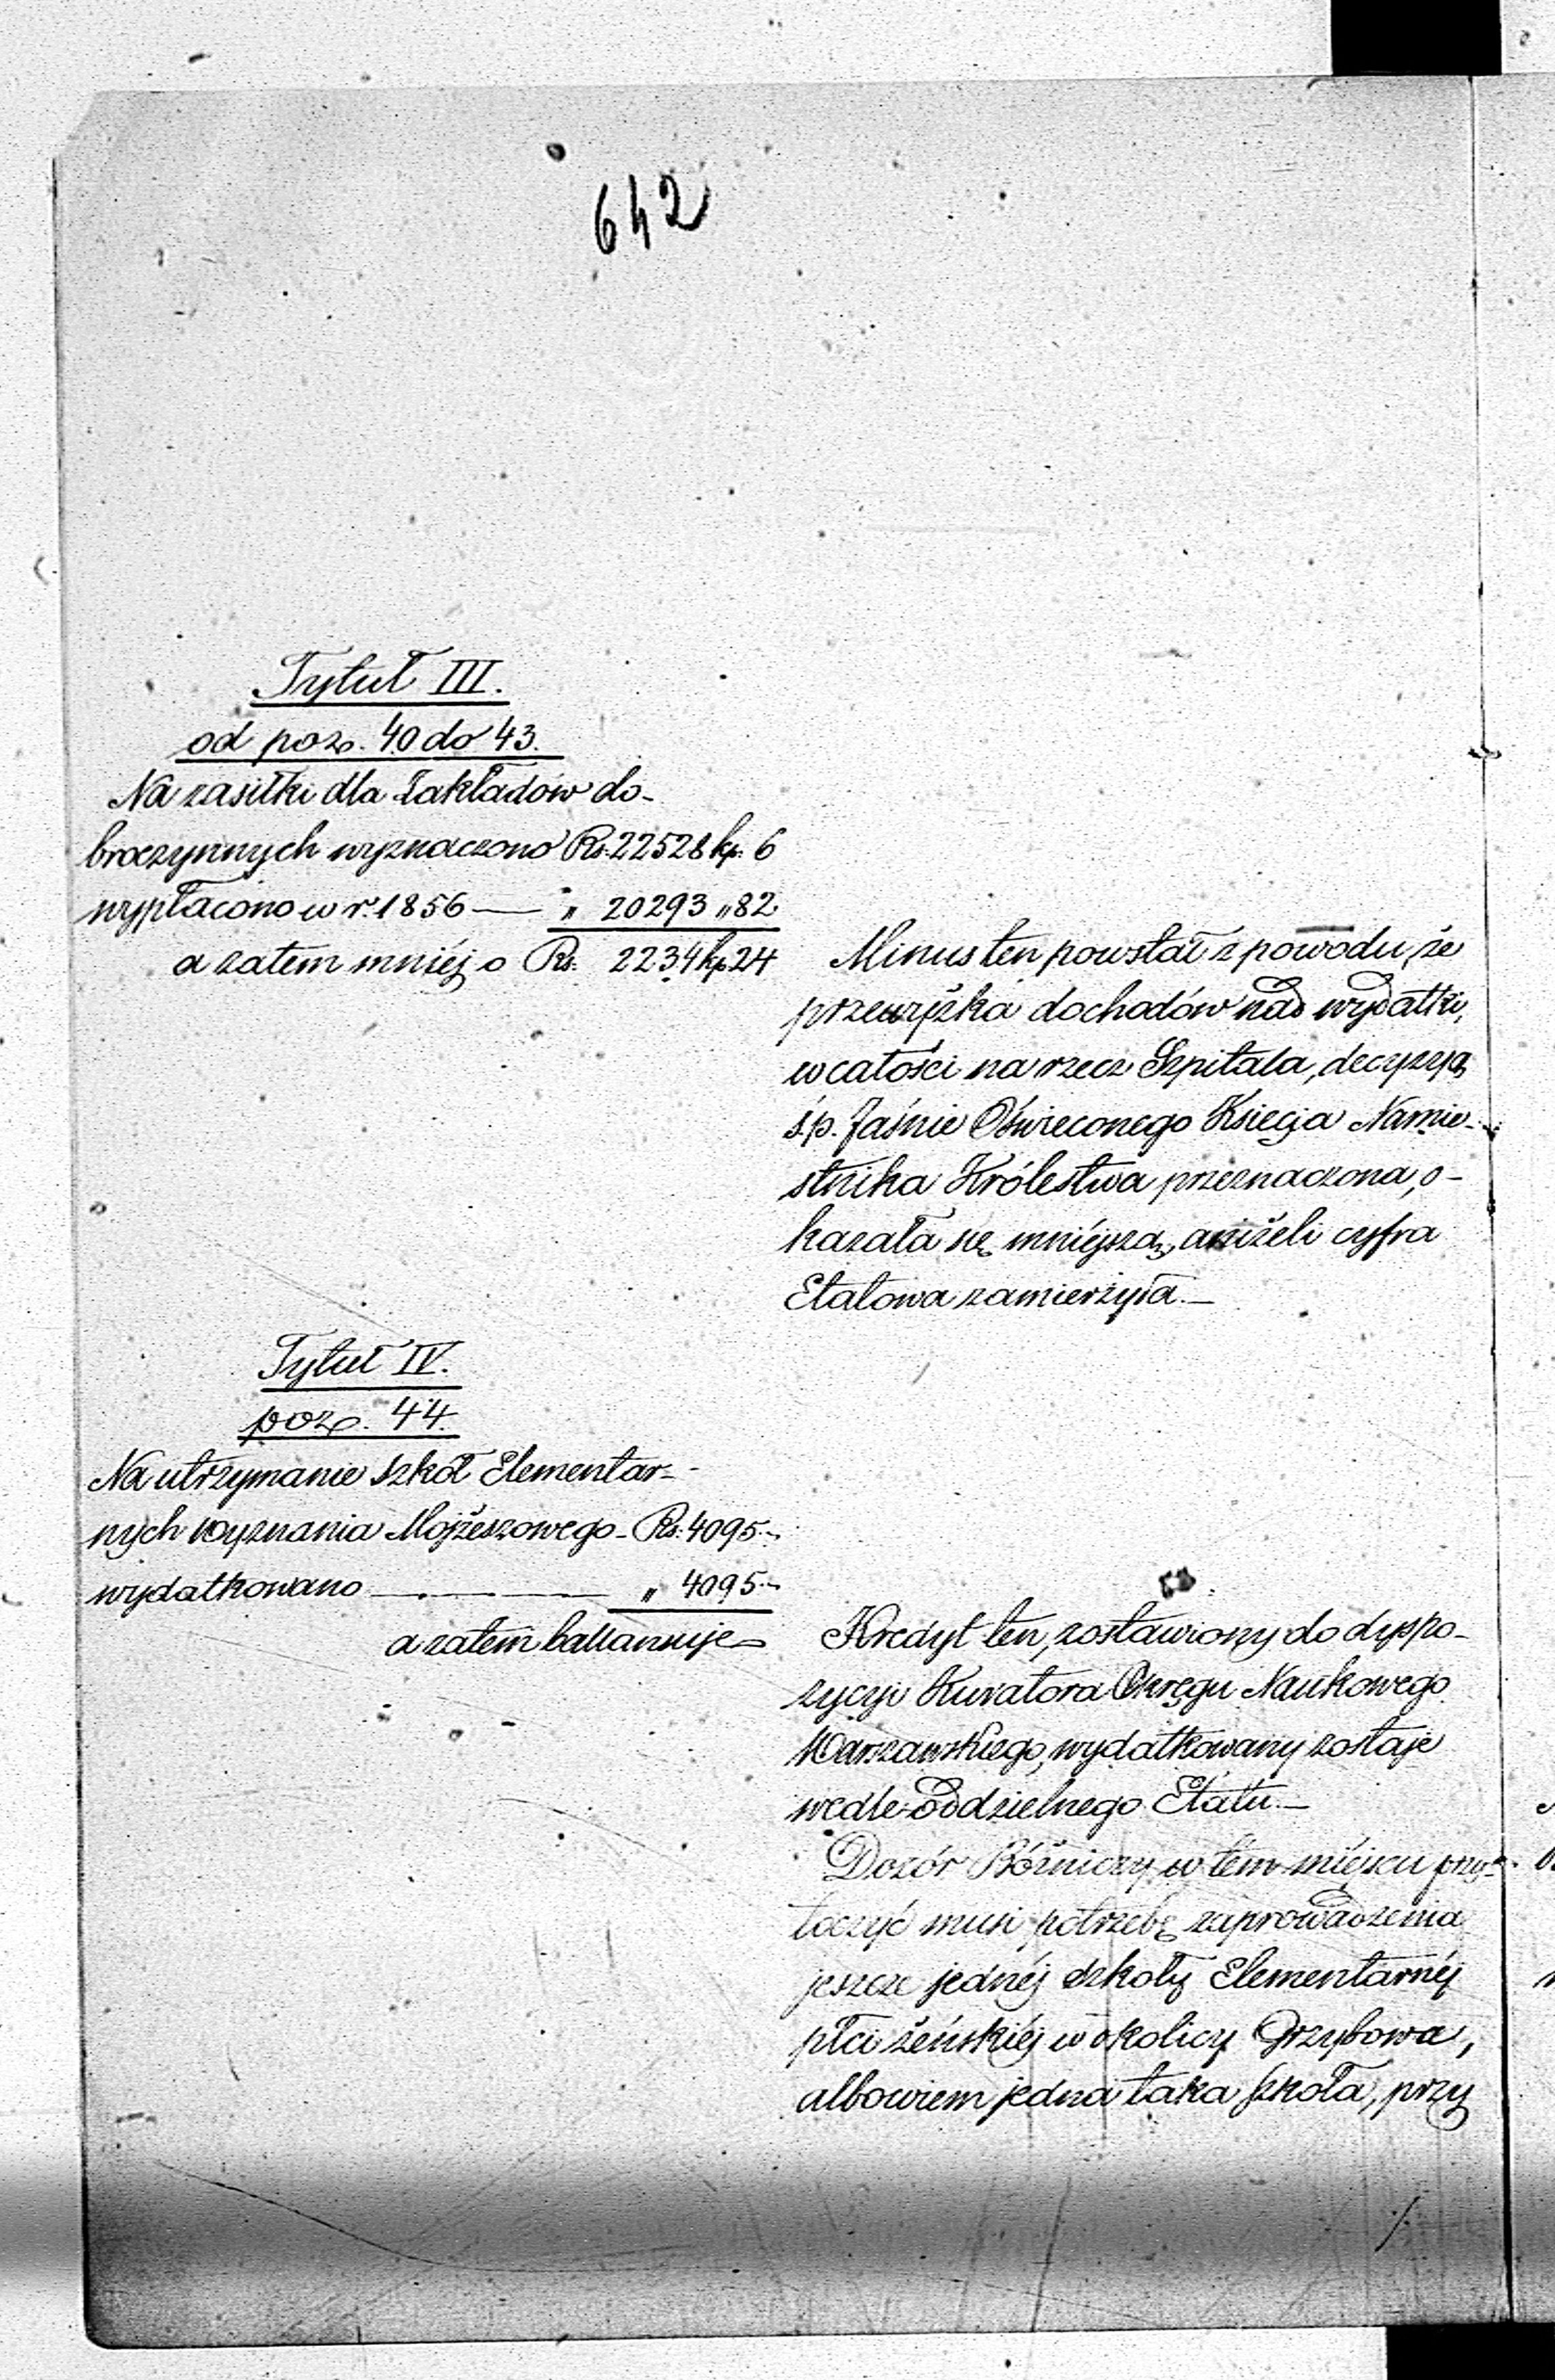 642
Tytuł III.
od poz. 40 do 43.
Na zasiłki dla Zakładów do-
broczynnych wyznaczono Rs. 22528 kp. 6
wypłacono w r. 1856 — „ 20293 „ 82
a zatem mniéj o Rs. 2234 kp. 24
Minus ten powstał z powodu, że
przewyżka dochodów nad wydatki,
w całości na rzecz Szpitala, decyzyą
ś.p. Jaśnie Oświeconego Księcia Namie-
stnika Królestwa przeznaczona, o-
kazała się mniéjszą, aniżeli cyfra
Etatowa zamierzyła. —
Tytuł IV.
poz. 44.
Na utrzymanie szkół Elementar-
nych Wyznania Mojżeszowego - Rs. 4095. -
wydatkowano — „ 4095. -
a zatem ballansuje
Kredyt ten, zostawiony do dyspo-
zycyi Kuratora Okręgu Naukowego
Warszawskiego, wydatkowany zostaje
wedle oddzielnego Etatu. —
Dozór Bóżniczy w tem miéjscu przy-
toczyć musi potrzebę zaprowadzenia
jeszcze jednéj szkoły Elementarnéj
płci żeńskiéj w okolicy Grzybowa,
albowiem jedna taka Szkoła, przy